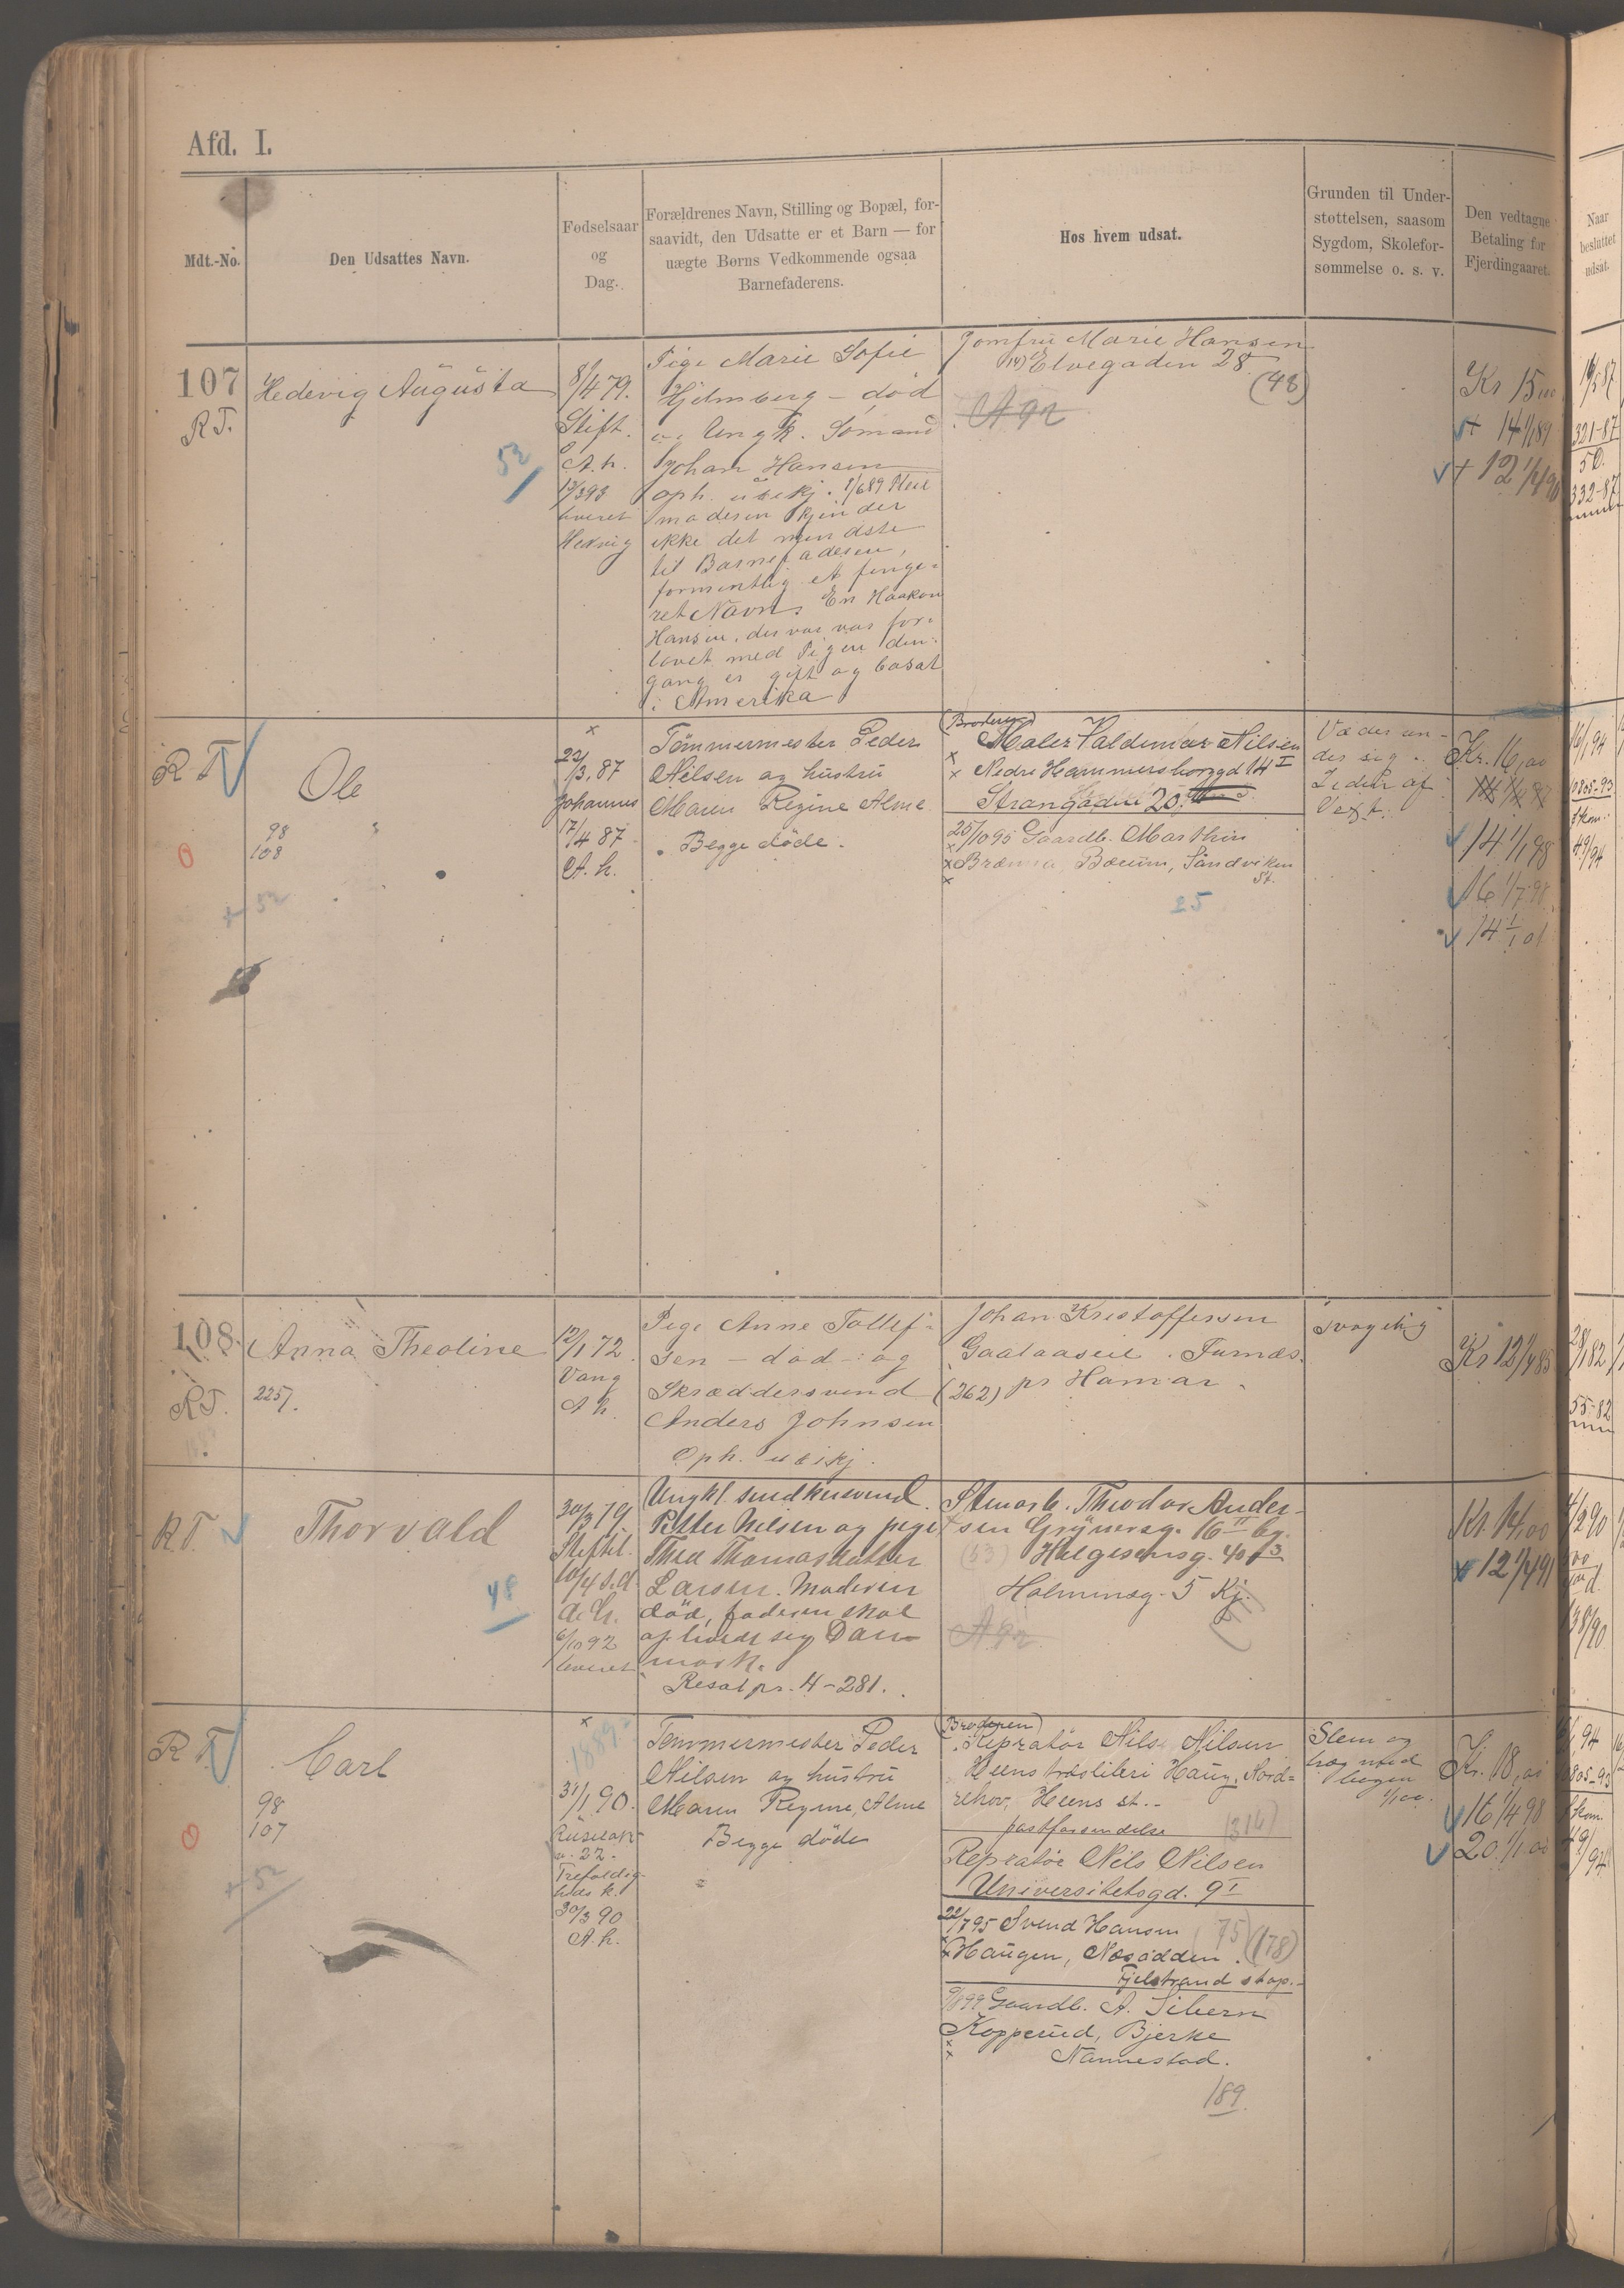 Afd. I.
Mdt.-No.
Den Udsattes Navn.
Fødselsaar
og
Dag.
Forældrenes Navn, Stilling og Bopæl, for-
saavidt, den Udsatte er et Barn — for
uægte Børns Vedkommende ogsaa
Barnefaderens.
Hos hvem udsat.
Grunden til Under-
støttelsen, saasom
Sygdom, Skolefor-
sømmelse o. s. v.
Den vedtagne
Betaling for
Fjerdingaaret.
Naar
besluttet
udsat.
107
R T.
Hedevig Augusta
52
8/4 79.
Stift.
A. h.
13/3 93
leveret
Hedvig
Pige Marie Sofie
Hjelmberg - død
og Ungk. Sømand
Johan Hansen
oph. ubekj. 8/6 89 Pleie
moderen kjender
ikke det mindste
til Barnefaderen,
formentlig et finge-
ret Navn. En Haakon
Hansen, der var for-
lovet med Pigen den-
gang er gift og bosat
i Amerika
Jomfru Marie Hansen
Elvegaden 28
(48)
A 92
Kr 15
+ 14 1/1 89
+ 12 1/4 90
321-87
50.
332-87
R T
Ole
98
108
0
+ 52
x
22/3, 87
Johannes
17/4 87
A. h.
Tömmermester Peder
Nilsen og hustru
Maren Regine Alme
Begge døde.
(Broderen)
Maler Valdemar Nilsen
x Nedre Hammersborggd 14 I
Strangaden 20.
25/10 95 Gaardb. Marthin
x Bærum, Sandviken
St.
25
Væder un-
der sig.
Lider af
Kr. 16,00
14 1/1 98
16 1/7 98
14 1/1 01
16/1 94
1805-93
108.
RT.
Anna Theoline
2257.
12/1 72
Vang
A h.
Pige Anne Tollef-
sen - død - og
Skræddersvend
Anders Johnsen
Oph. ubekj.
Johan Kristoffersen
Gaalaaseie. Furnæs.
(262) pr Hamar.
svagelig
Kr 12 1/4 85
28/1 82
55-82
R T.
Thorvald
48
30/3 79
10/4 s.d.
A. h.
6/10 92
leveret
Ungkl. smedkesvend
Petter Nilsen og pige
Thea Thomasdatter
Larsen. Moderen
död, faderen skal
opholde sig Dan-
mark.
Resolpr. 4-281.
Stenarb. Theodor Ander-
sen Grünersg. 16 II bg.
(53) Helgesensg. 40 f 3
Holmensg. 5 Kj.
A 92
Kr. 14,00
12 1/4 91
R T
Carl
98
107
0
+ 52
x
1889
31/1 90.
22.
Trefoldig-
heds k.
30/3 90
A. h.
Tømmermester Peder
Nilsen og hustru
Maren Regine Alme
Begge døde
(Broderen)
Repratør Nils Nilsen
Heens træsliberi Haug, Nord-
rehov, Heens st.
postforsendelse
(314)
Repratør Nils Nilsen
Universitetsgd. 9 I
22/7 95 Svend Hansen
75 (178)
x Haugen, Næsodden.
Fjelstrand stop.
9/8 99 Gaardb. A. Sibern
Kopperud, Bjerke
Nannestad.
189
Slem og
træg med
bogen
1/1 00.
Kr. 18,00
16 1/4 98
20 1/1 00
1805-93